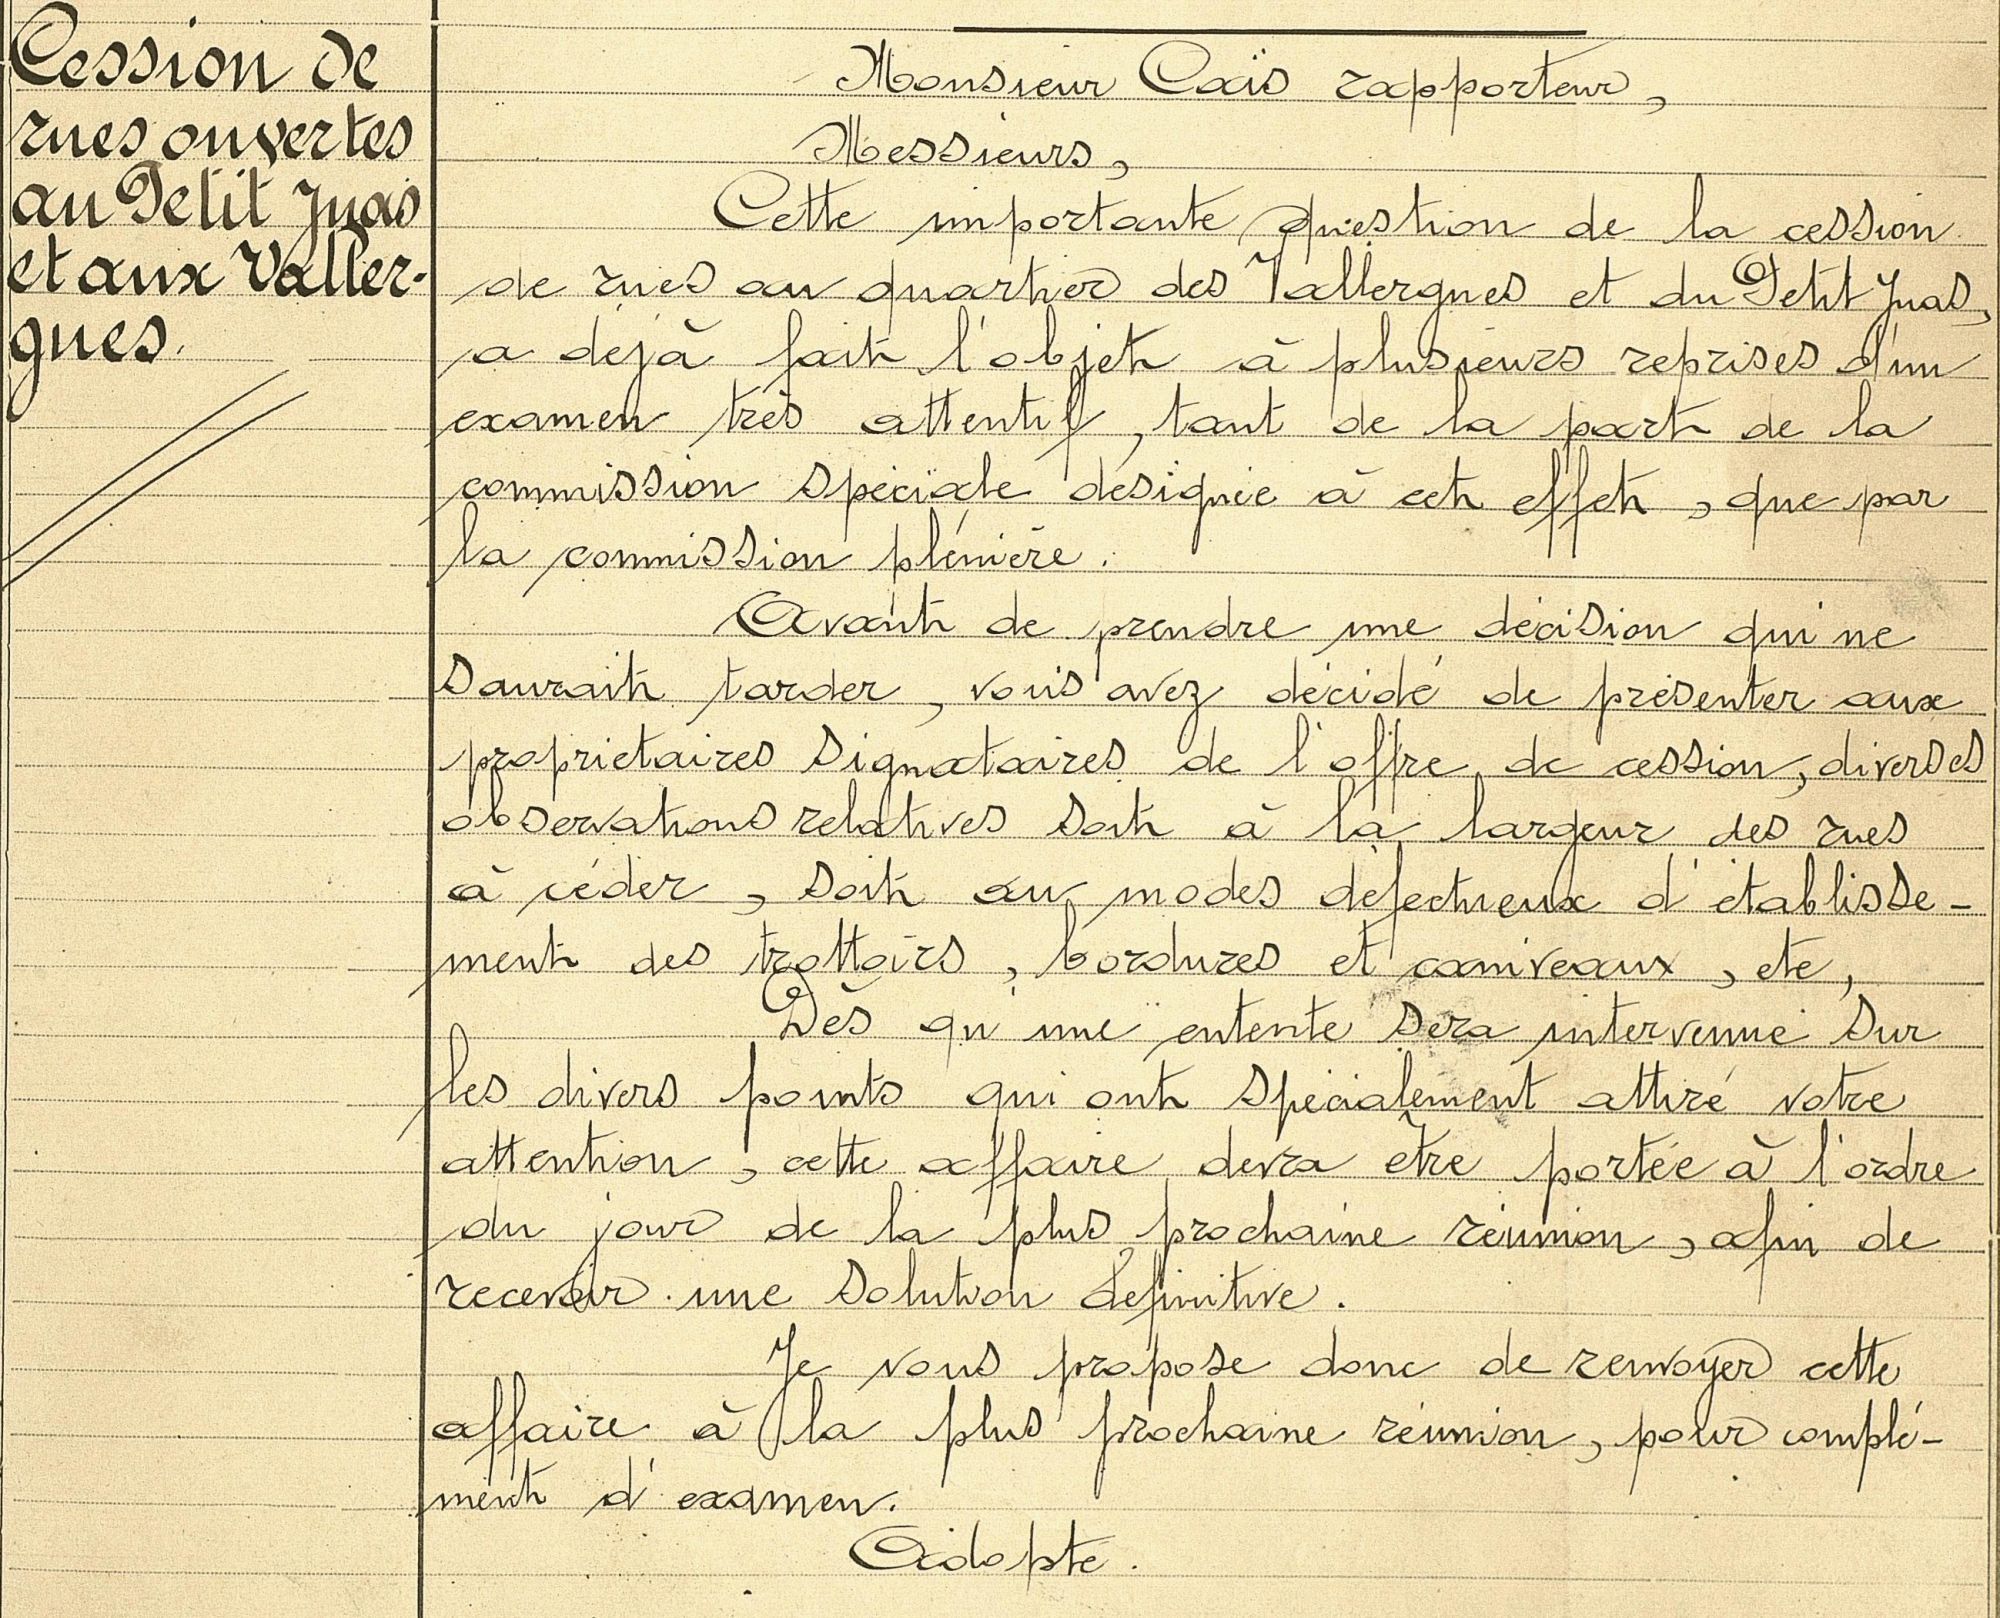 Cession de
rues ouvertes
au Petit Juas
et aux Valler-
gues.
Monsieur Caïs rapporteur,
Messieurs,
Cette importante question de la cession
de rues au quartier des Vallergues et du Petit Juas,
a déjà fait l'objet à plusieurs reprises d'un
examen très attentif, tant de la part de la
commission spéciale désignée à cet effet, que par
la commission plénière.
Avant de prendre une décision qui ne
saurait tarder, vous avez décidé de présenter aux
propriétaires signataires de l'offre de cession, diverses
observations relatives soit à la largeur des rues
à céder, soit au modes défectueux d'établisse-
ment des trottoirs, bordures et caniveaux, etc,
Dès qu'une entente sera intervenue sur
les divers points qui ont spécialement attiré votre
attention, cette affaire devra être portée à l'ordre
du jour de la plus prochaine réunion, afin de
recevoir une solution définitive.
Je vous propose donc de renvoyer cette
affaire à la plus prochaine réunion, pour complé-
ment d'examen.
Adopté.